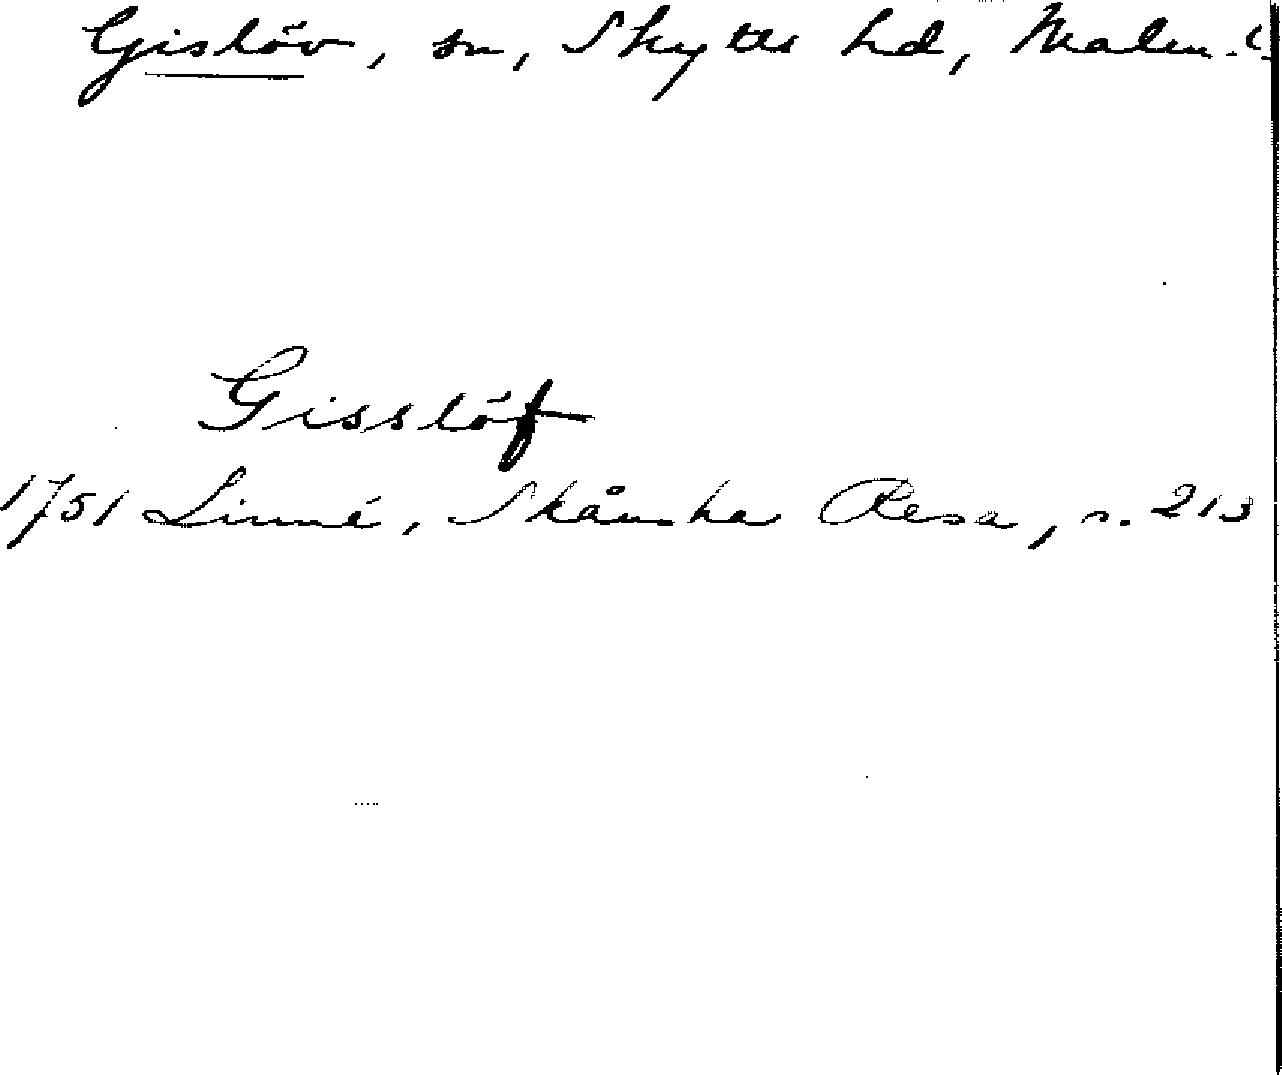 Gislöv, sn, Skytts hd, Malm.
Gisslöf
1751 Linné, Skånska Resa, s. 213